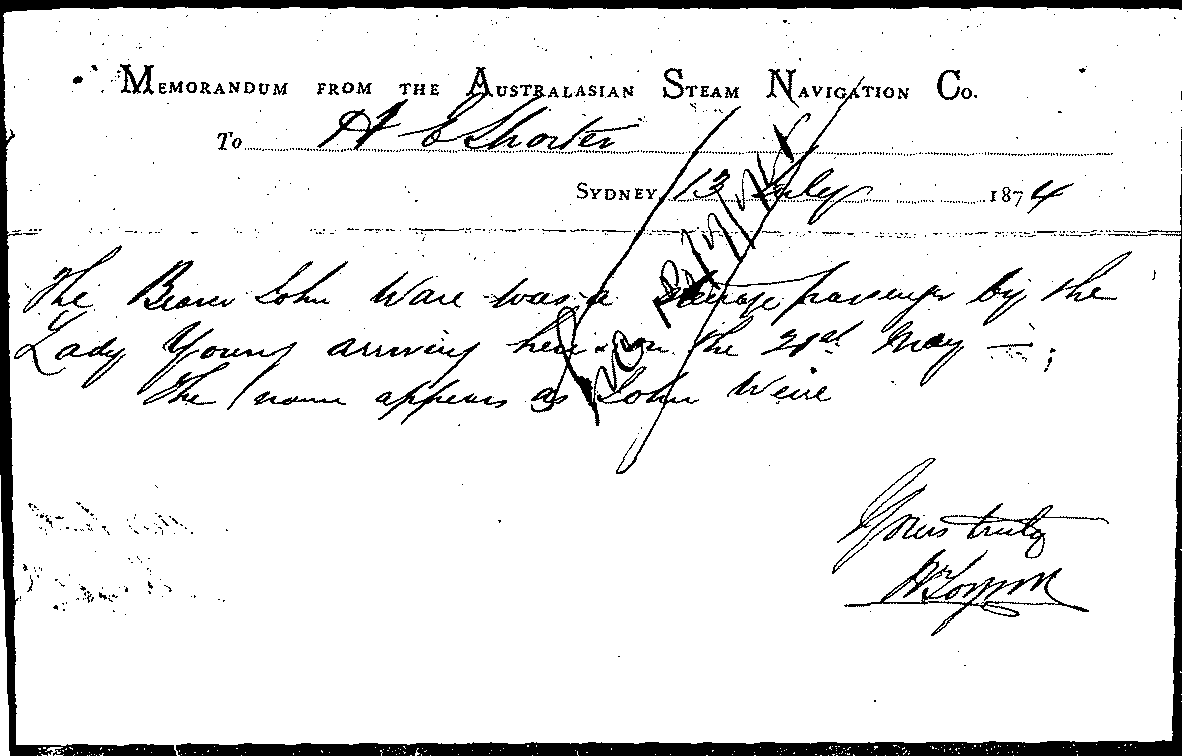 MEMORANDUM FROM THE AUSTRALASIAN STEAM NAVIGATION CO.
To H E Shorter
SYDNEY, 13 July 1874
The Bearer John Ware was a steerage passenger by the
Lady Young arriving here on the 21st May — ;
The name appears as John Weire
Yours truly